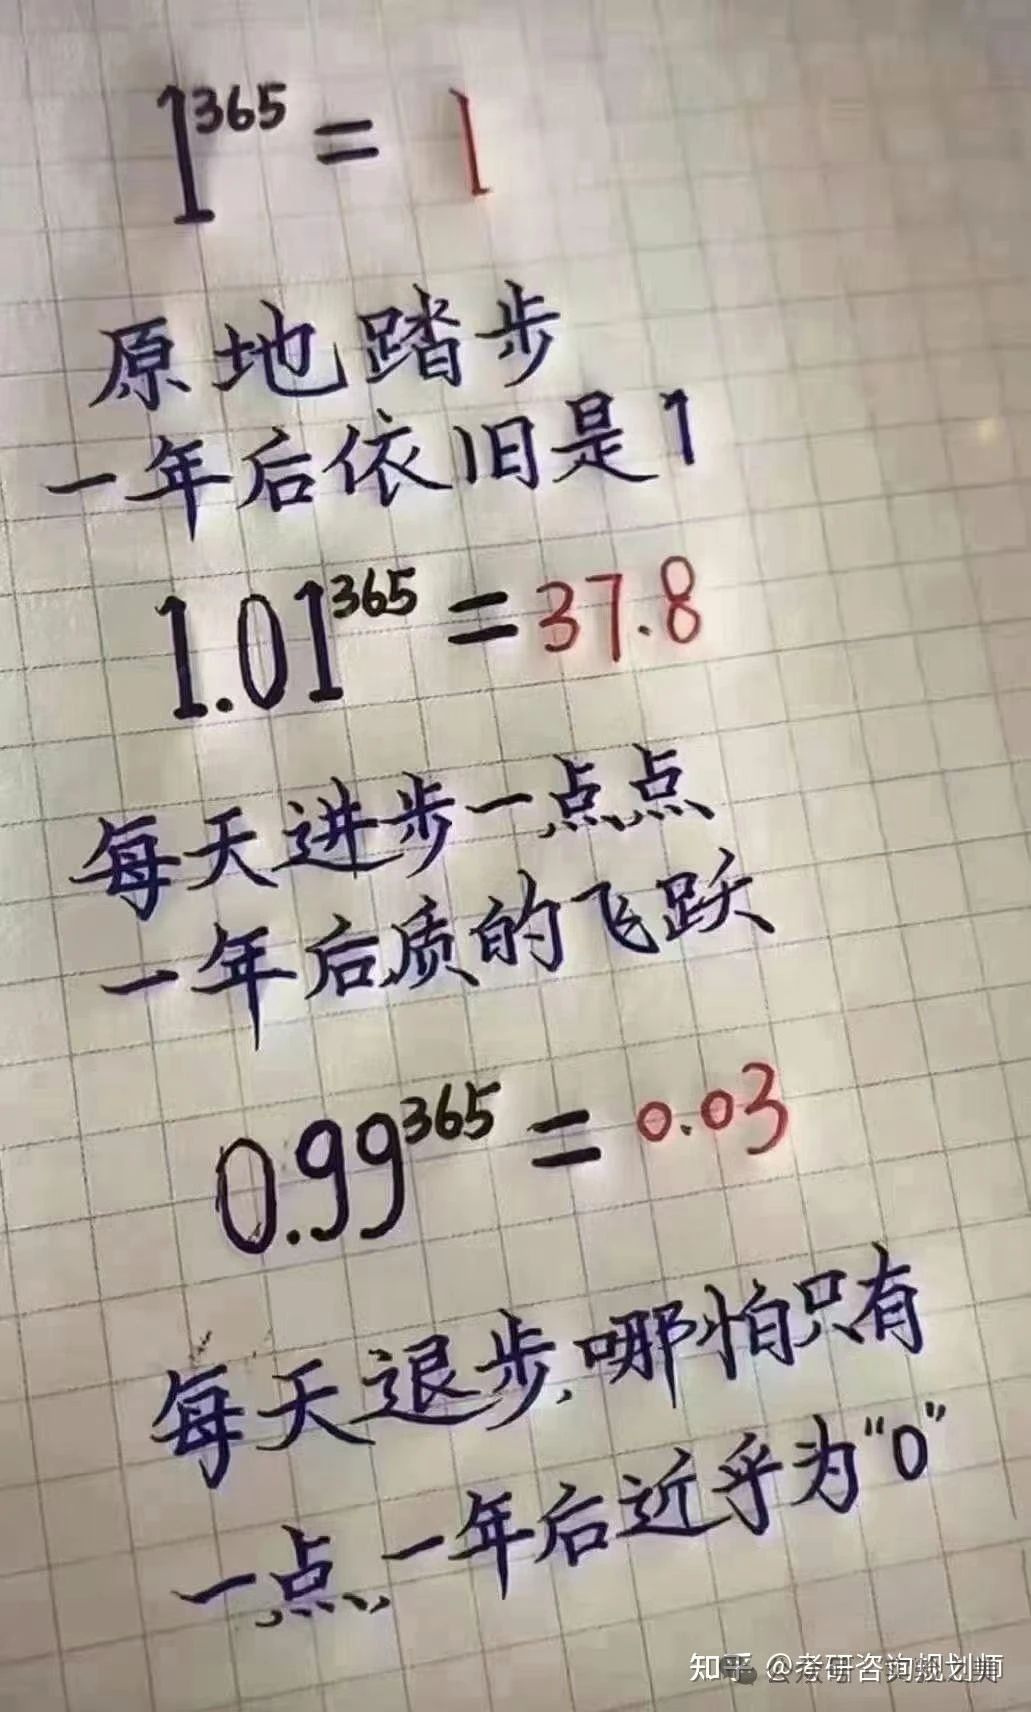 1³⁶⁵ = 1
原地踏步
一年后依旧是1
1.01³⁶⁵ = 37.8
每天进步一点点
一年后质的飞跃
0.99³⁶⁵ = 0.03
每天退步,哪怕只有
一点,一年后近乎为“0”
知乎 @考研咨询规划师